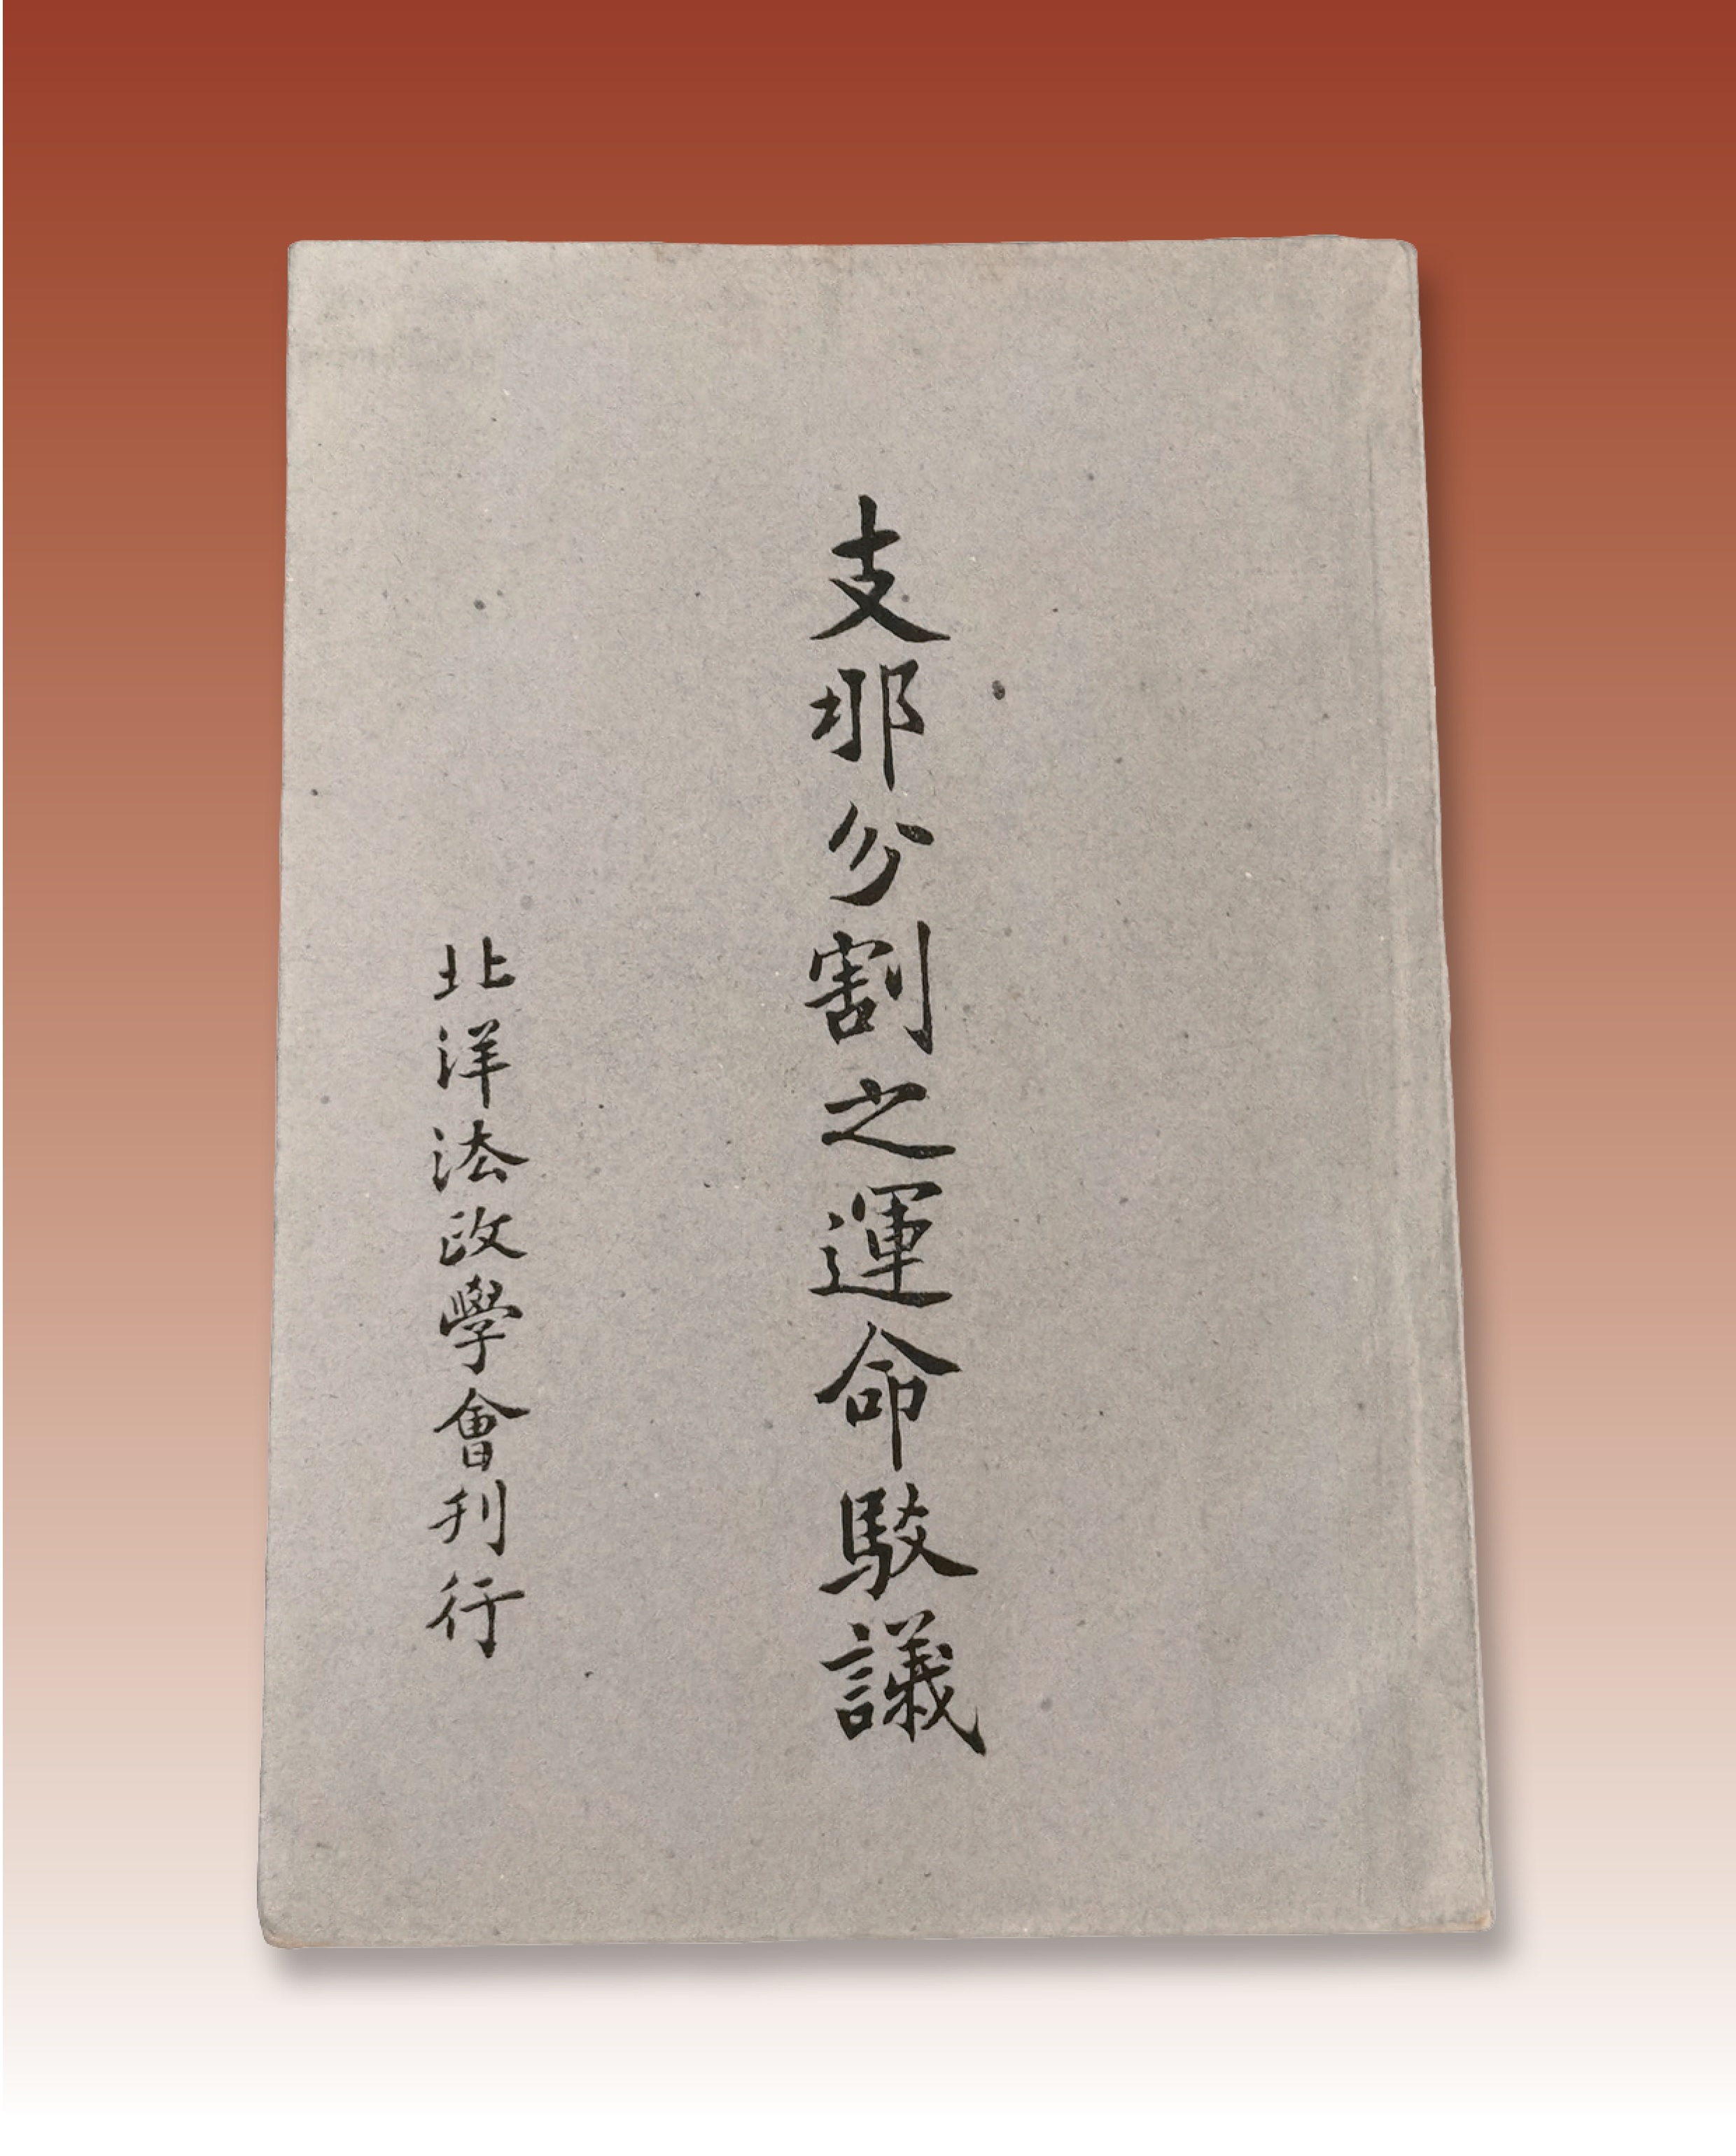 支那分割之運命駁議
北洋法政學會刊行